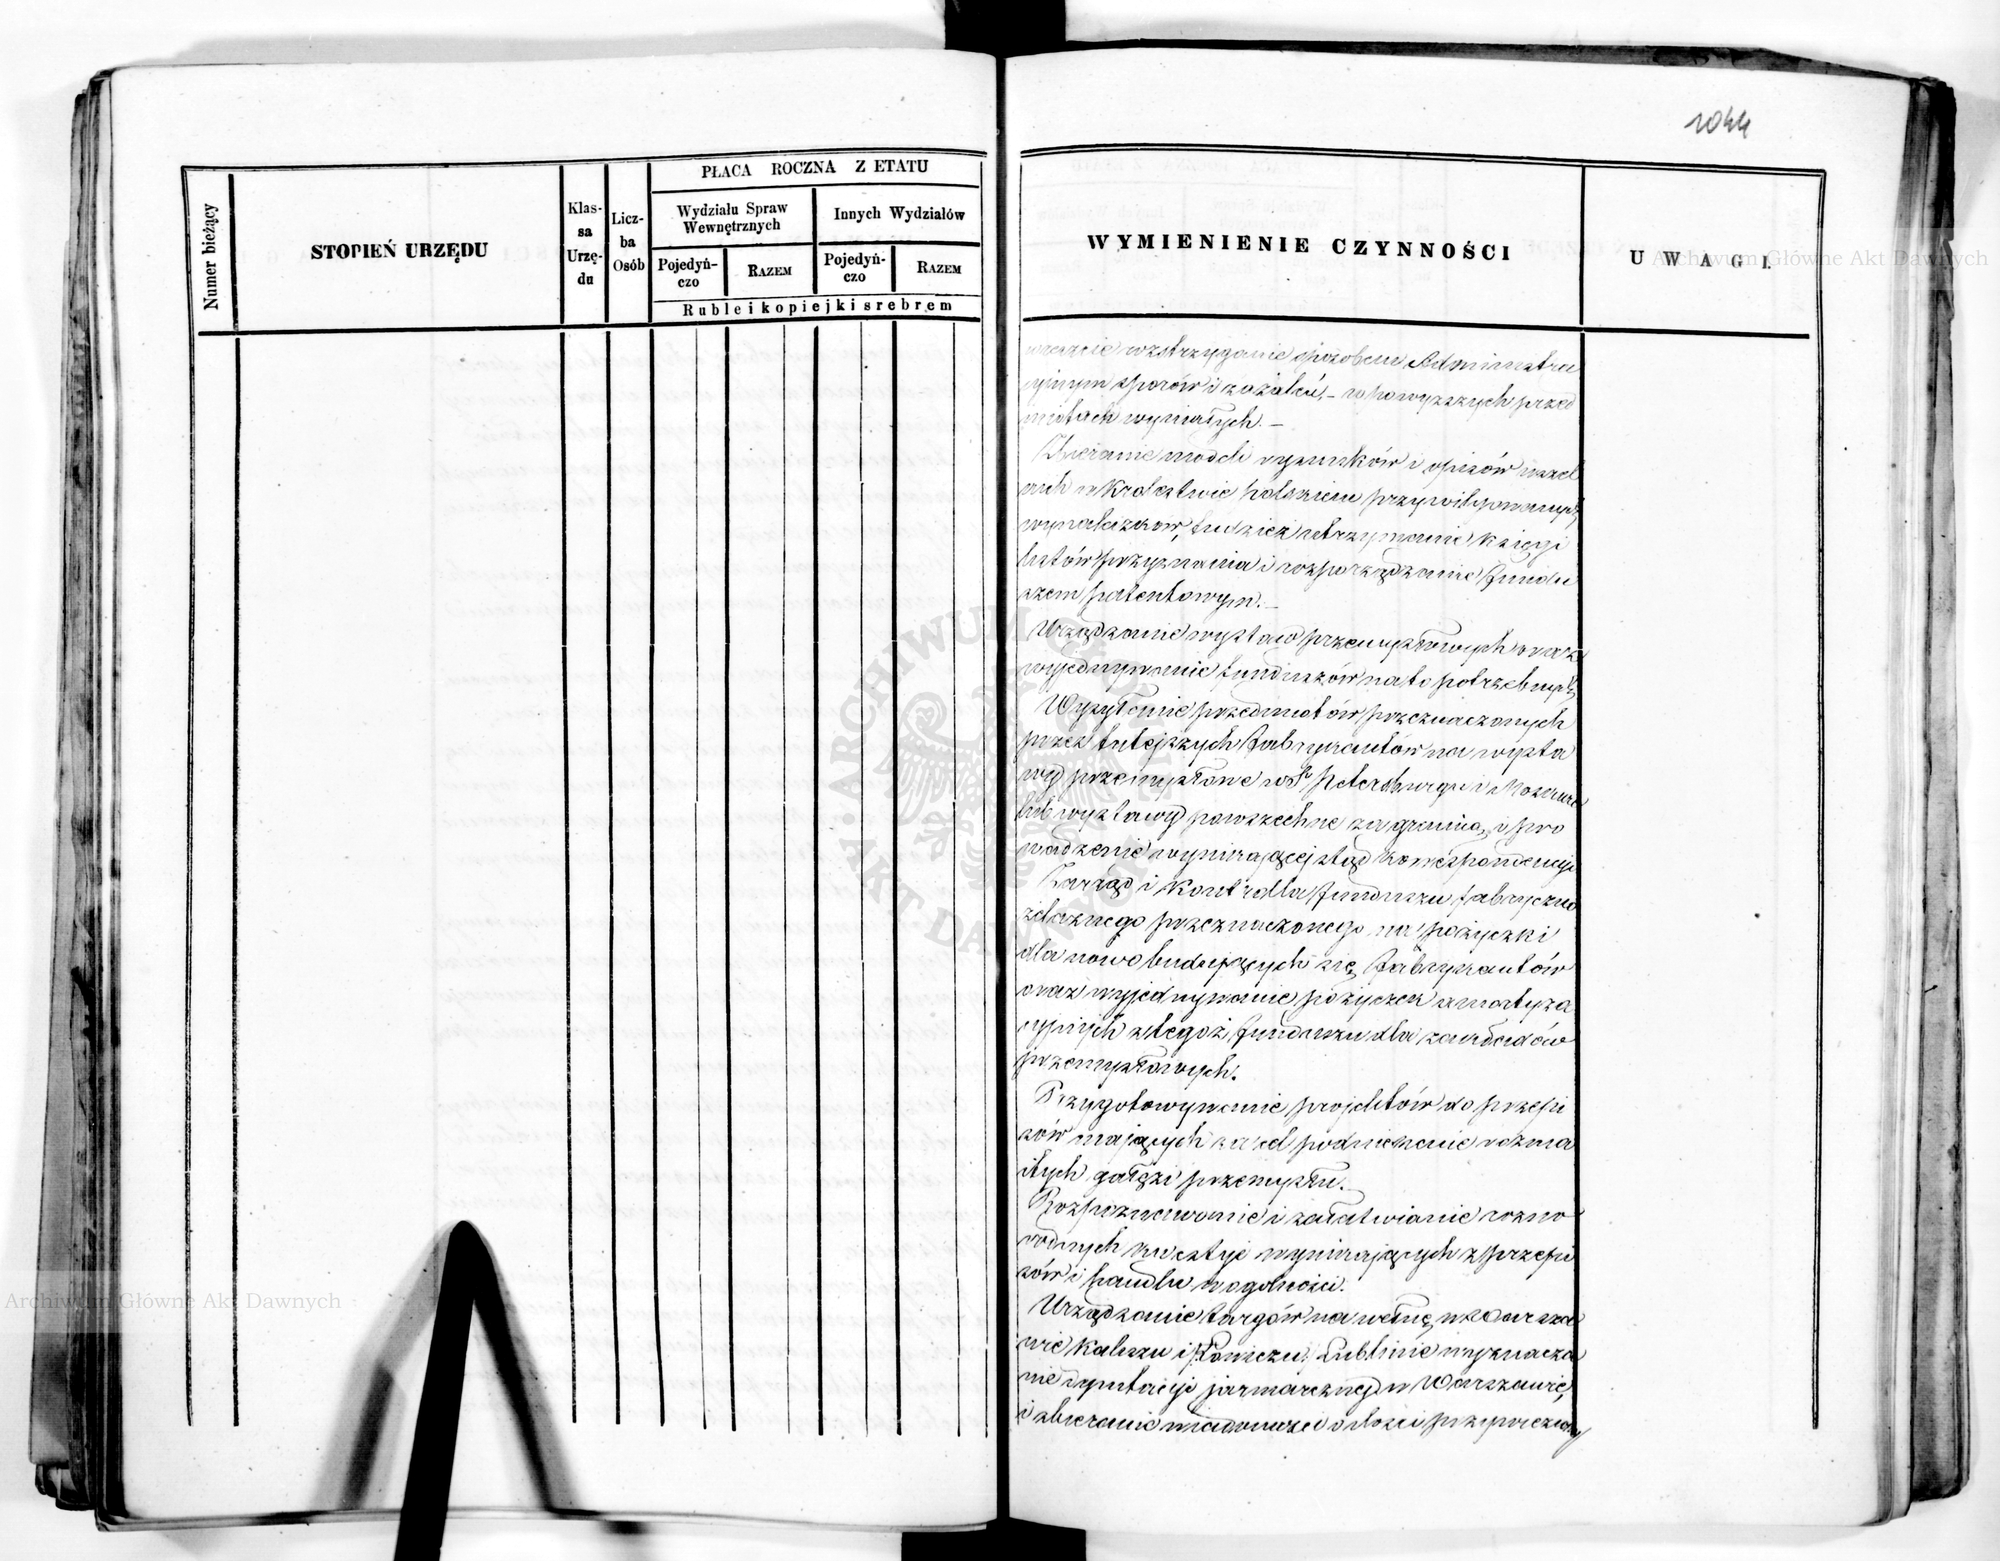 1044
Numer bieżący
STOPIEŃ URZĘDU
Klas-
sa
Urzę-
du
Licz-
ba
Osób
PŁACA ROCZNA Z ETATU
Wydziału Spraw
Wewnętrznych
Innych Wydziałów
Pojedyń-
czo
RAZEM
Pojedyń-
czo
RAZEM
Ruble i kopiejki srebrem
WYMIENIENIE CZYNNOŚCI
UWAGI.
wreszcie rozstrzyganie sposobem Administra
cyjnym sporów i zażaleń, – w powyższych przed
miotach wynikłych. –
Zbieranie modeli rysunków i opisów wszel
kich w Królestwie Polskiem przywilejowanych
wynalazków, tudzież utrzymanie księgi
listów przyznania i rozporządzanie fundu
szem patentowym. –
Urządzanie wystaw przemysłowych oraz
wyjednywanie funduszów na to potrzebnych
Wysyłanie przedmiotów przeznaczonych
przez tutejszych fabrykantów na wysta
wy przemysłowe w St Petersburgu i Moskwie
lub wystawy powszechne za granicą, i pro
wadzenie wynikającej stąd korrespondencyi
Zarząd i Kontrolla funduszu fabryczno
żelaznego przeznaczonego na pożyczki
dla nowo budujących się fabrykantów
oraz wyjednywanie pożyczek amortyza
cyjnych z tegoż funduszu dla zakładów
przemysłowych.
Przygotowywanie projektów do przepi
sów mających na cel podniesienie rozma
itych gałęzi przemysłu.
Rozpoznawanie i załatwianie rozno
rodnych kwestyi wynikających z przepi
sów i handlu w ogólności.
Urządzanie targów na wełnę w Warsza
wie Kaliszu i Łowiczu, Lublinie wyznacza
nie deputacyi jarmarcznej w Warszawie,
i zbieranie wiadomości o ilości przywiezionej
Archiwum Główne Akt Dawnych
Archiwum Główne Akt Dawnych
ARCHIWUM GŁÓWNE AKT DAWNYCH